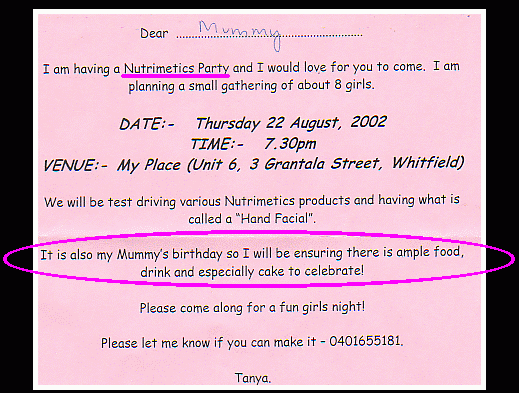 Dear Mummy
I am having a Nutrimetics Party and I would love for you to come. I am
planning a small gathering of about 8 girls.
DATE:- Thursday 22 August, 2002
TIME:- 7.30pm
VENUE:- My Place (Unit 6, 3 Grantala Street, Whitfield)
We will be test driving various Nutrimetics products and having what is
called a “Hand Facial”.
It is also my Mummy’s birthday so I will be ensuring there is ample food,
drink and especially cake to celebrate!
Please come along for a fun girls night!
Please let me know if you can make it – 0401655181.
Tanya.